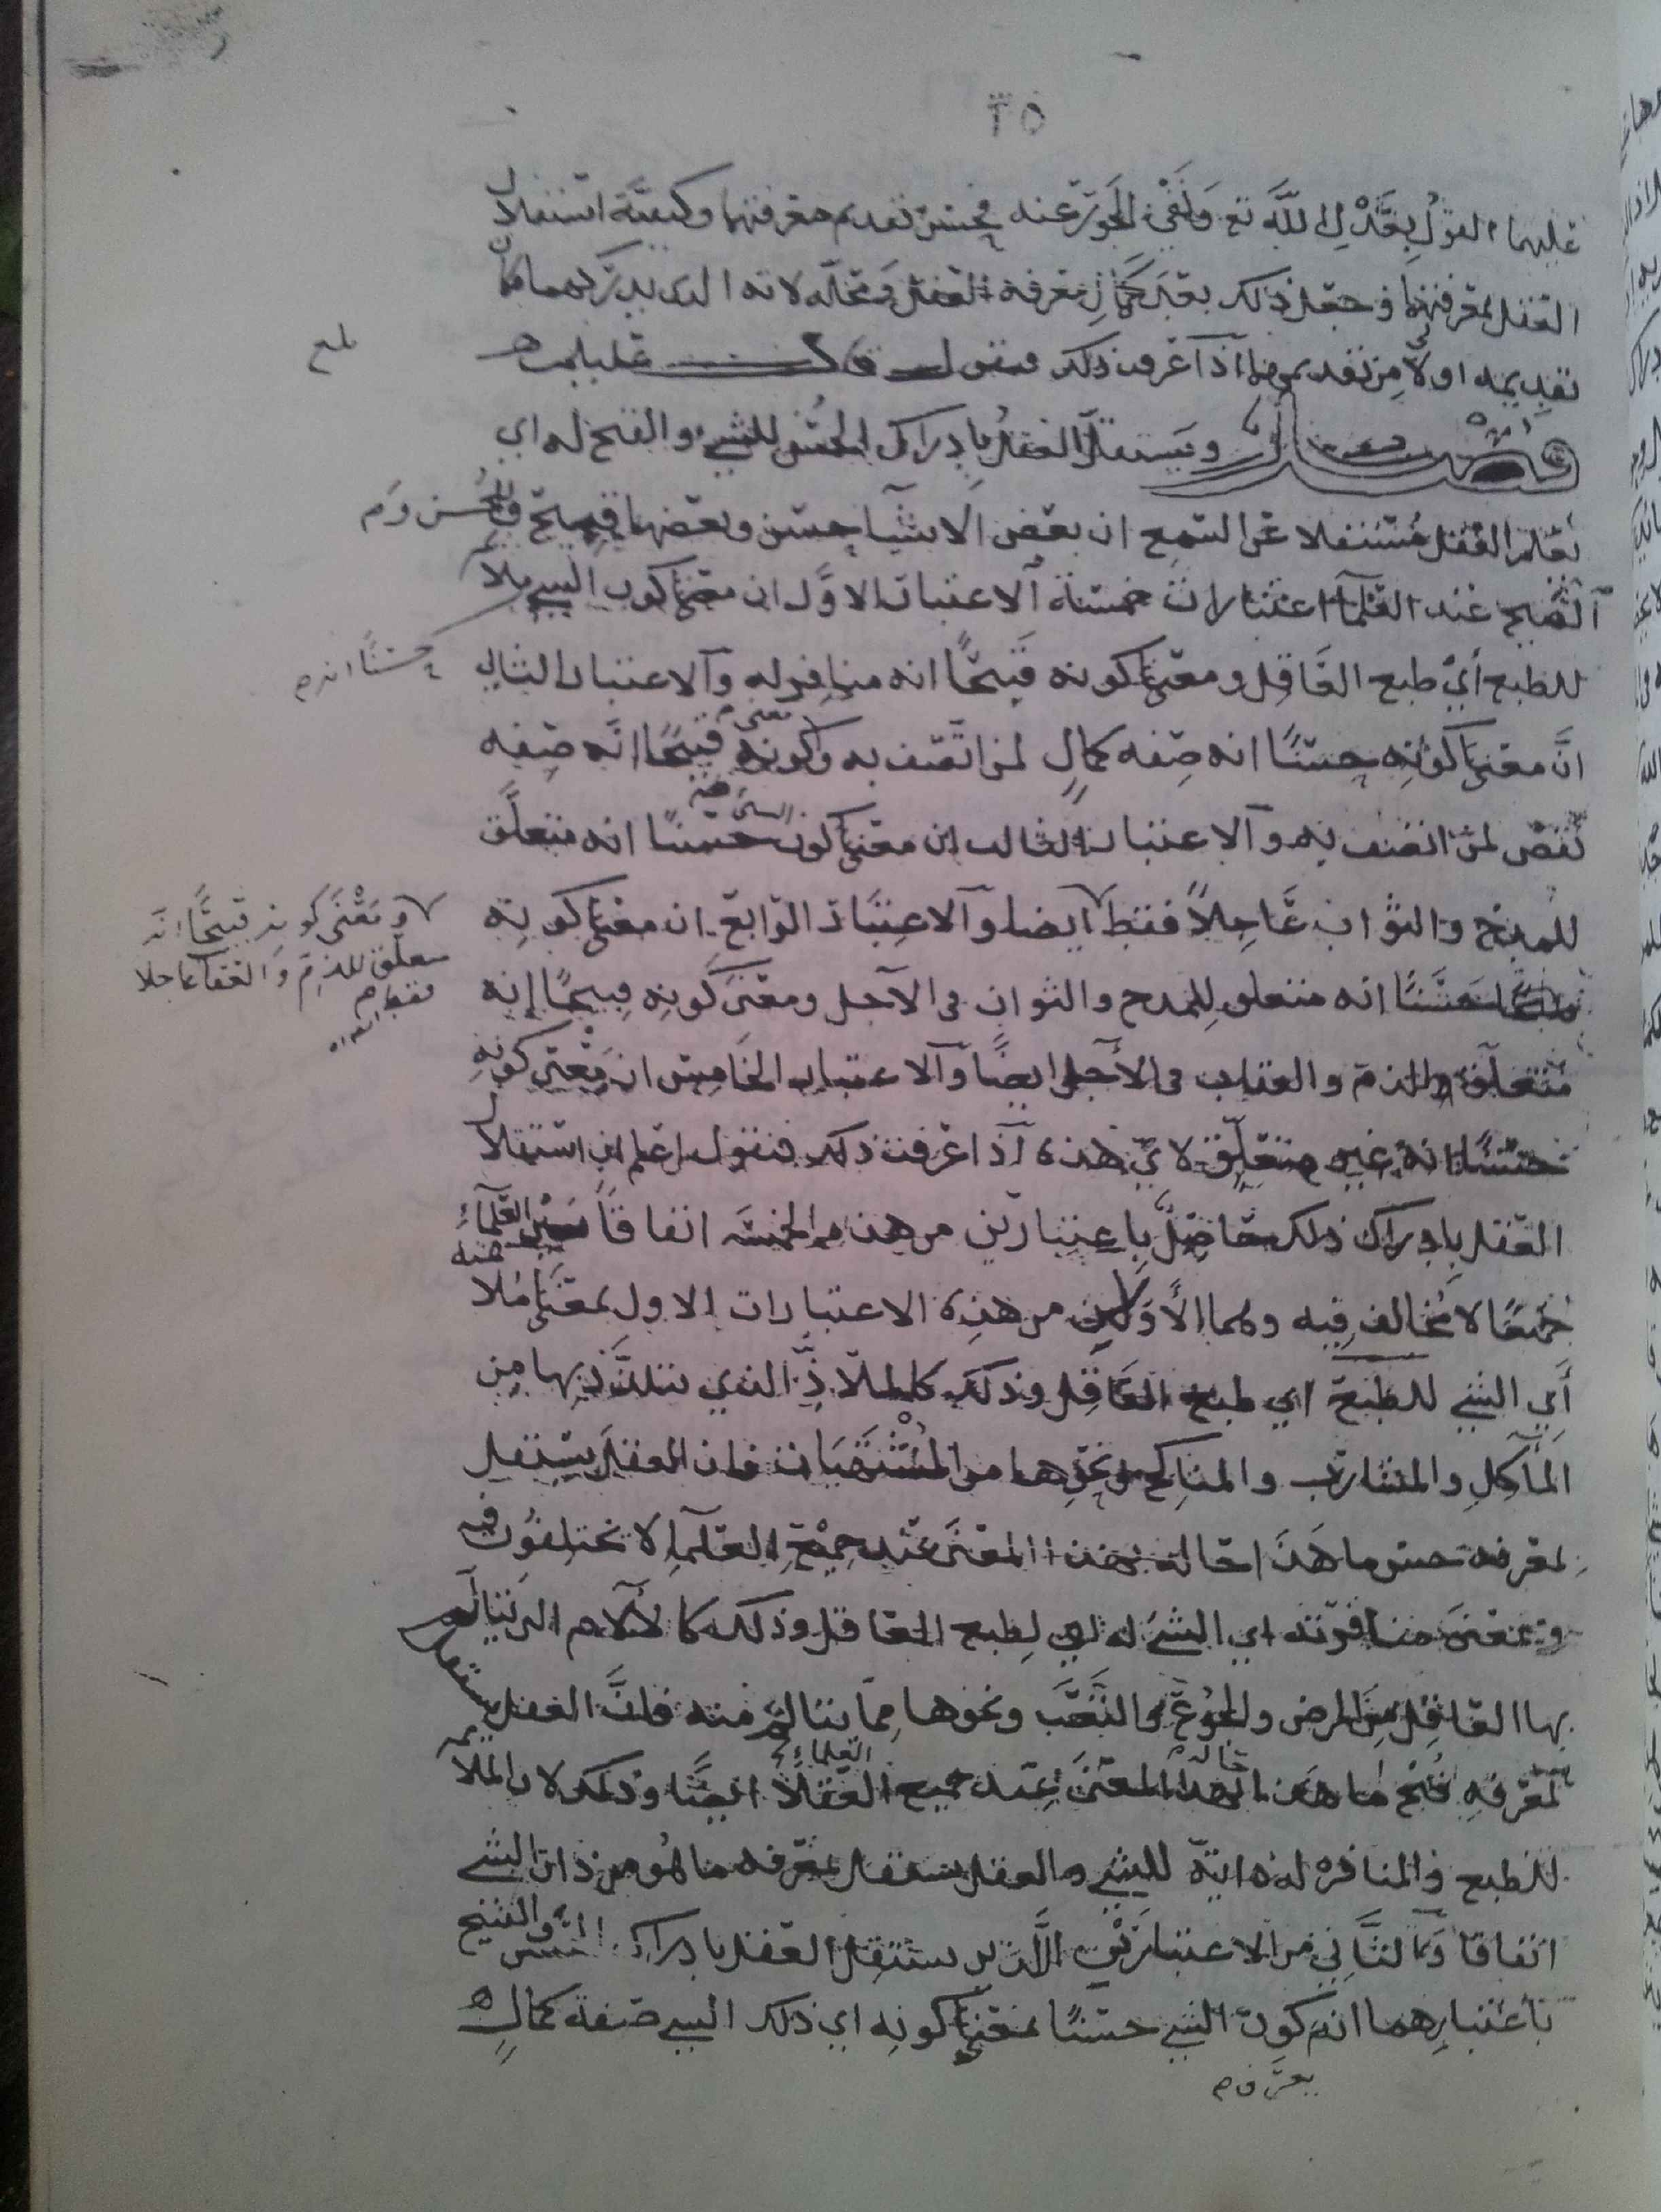 ٢٥
عليها القول بعدل الله تع ونفي الجور عنه فحسن تقديم معرفتها وكيفية استقلال
العقل بمعرفتها وجعل ذلك بعد كمال معرفة العقل ومحله لانه الذي يدركهما فكان
تقديمه اولى من تقديمهما اذا عرفت ذلك فنقول قال عليلم
بلغ
فصل ويستقل العقل بادراك الحسن للشيء والقبح له اي
يعلم العقل مستقلا عن السمع ان بعض الاشيآ حسن وبعضها قبيح وللحسن و
القبح عند العلمآ اعتبارات خمسة الاعتبار الاول ان معنى كون الشي ملايم
حسنًا انه
للطبع أي طبع العاقل ومعنى كونه قبيحًا انه منافر له والاعتبار الثاني
انّ معنى كونه حسنًا انه صفه كمالٍ لمن اتصف به ومعنى كونه قبيحًا انه صفه
نقص لمن اتصف به والاعتبار الثالث ان معنى كون الشي حسنًا انه متعلق
للمدح والثواب عاجلاً فقط ايضا والاعتبار الرابع ان معنى كونه
ومعنى كونه قبيحًا انه
متعلق للذم والعقاب عاجلا
فقط
حسنًا انه متعلق للمدح والثواب في الآجل ومعنى كونه قبيحًا إنه
متعلق للذم والعقاب في الآجل ايضًا والاعتبار الخامس ان معنى كونه
حسنًا انه غير متعلق لاي هذه اذا عرفت ذلك فنقول اعلم ان استقلال
العقل بادراك ذلك حاصل باعتبارين من هذه الخمسه اتفاقاً بين العلمآء
جميعًا لا مخالف فيه وهما الأولان من هذه الاعتبارات الاول بمعنى ملايمته
أي الشي للطبع اي طبع العاقل وذلك كالملاذّ الذي نتلذّذ بها من
المآكل والمشارب والمناكح ونحوها من المشتهيات فان العقل يستقل
بمعرفه حسن ما هذا حاله بهذا المعنى عند جميع العلمآ لا يختلفون فيه
وبمعنى منافرته اي الشي له اي لطبع العاقل وذلك كالآلام الذي يتالم
بها العاقل من المرض والجوع والتعب ونحوها مما يتالم منه فإنّ العقل يستقل
بمعرفه قبح ما هذا حاله بهذا المعنى عند جميع العقلآ ايضًا وذلك لان الملايمه
للطبع والمنافره له ذاتية للشي والعقل يستقل بمعرفه ما هو من ذات الشي
اتفاقا والثاني من الاعتبارين الذين يستقل العقل بادراك الحسن والقبيح
باعتبارهما انه كون الشي حسنًا بمعنى كونه اي ذلك الشي صفة كمالٍ
يعرف